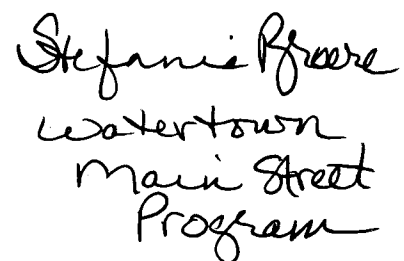 Stefanie
Watertown
Main Street
Program